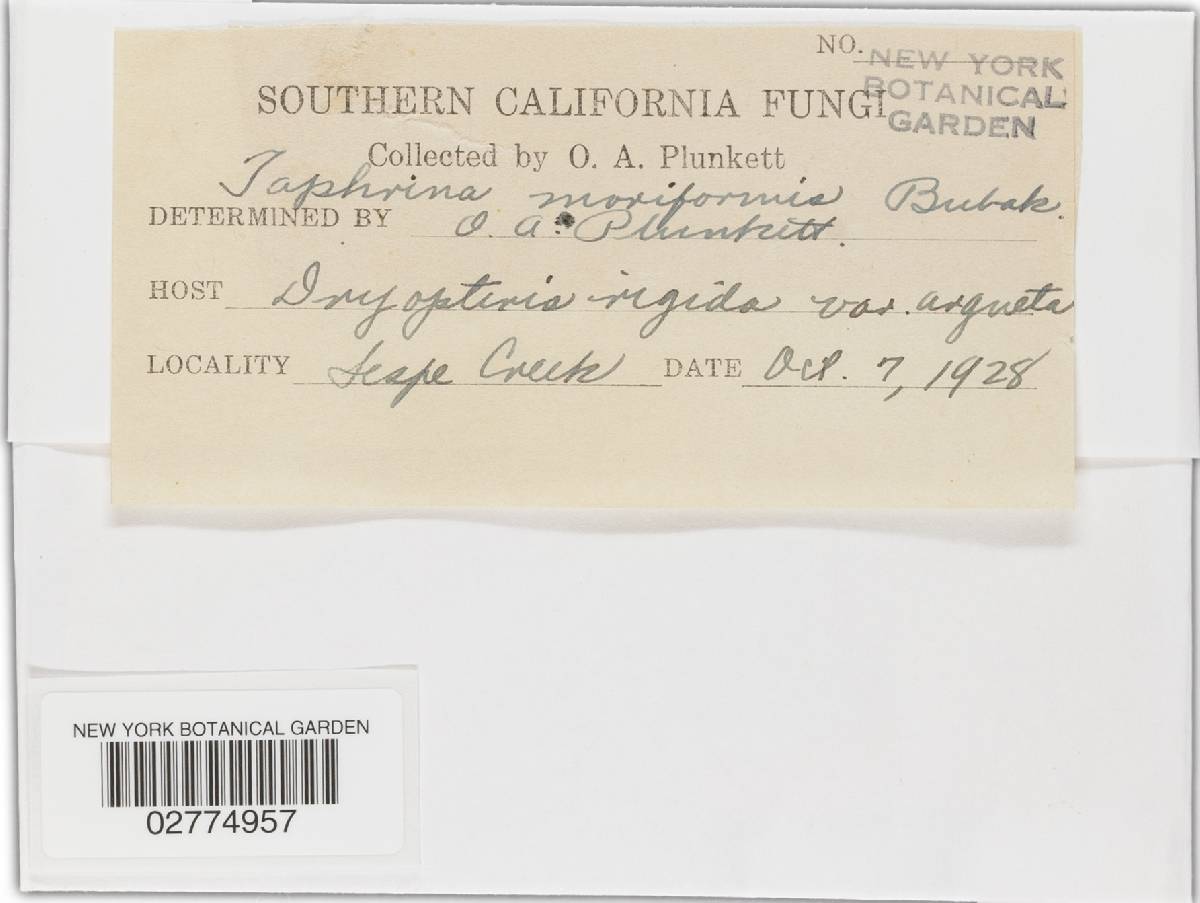 NO.
NEW YORK
BOTANICAL
GARDEN
SOUTHERN CALIFORNIA FUNGI
Collected by O. A. Plunkett
Taphrina moriformis Bubak.
DETERMINED BY O. A. Plunkett.
HOST Dryopteris rigida var. argueta
LOCALITY Sespe Creek DATE Oct. 7, 1928
NEW YORK BOTANICAL GARDEN
02774957